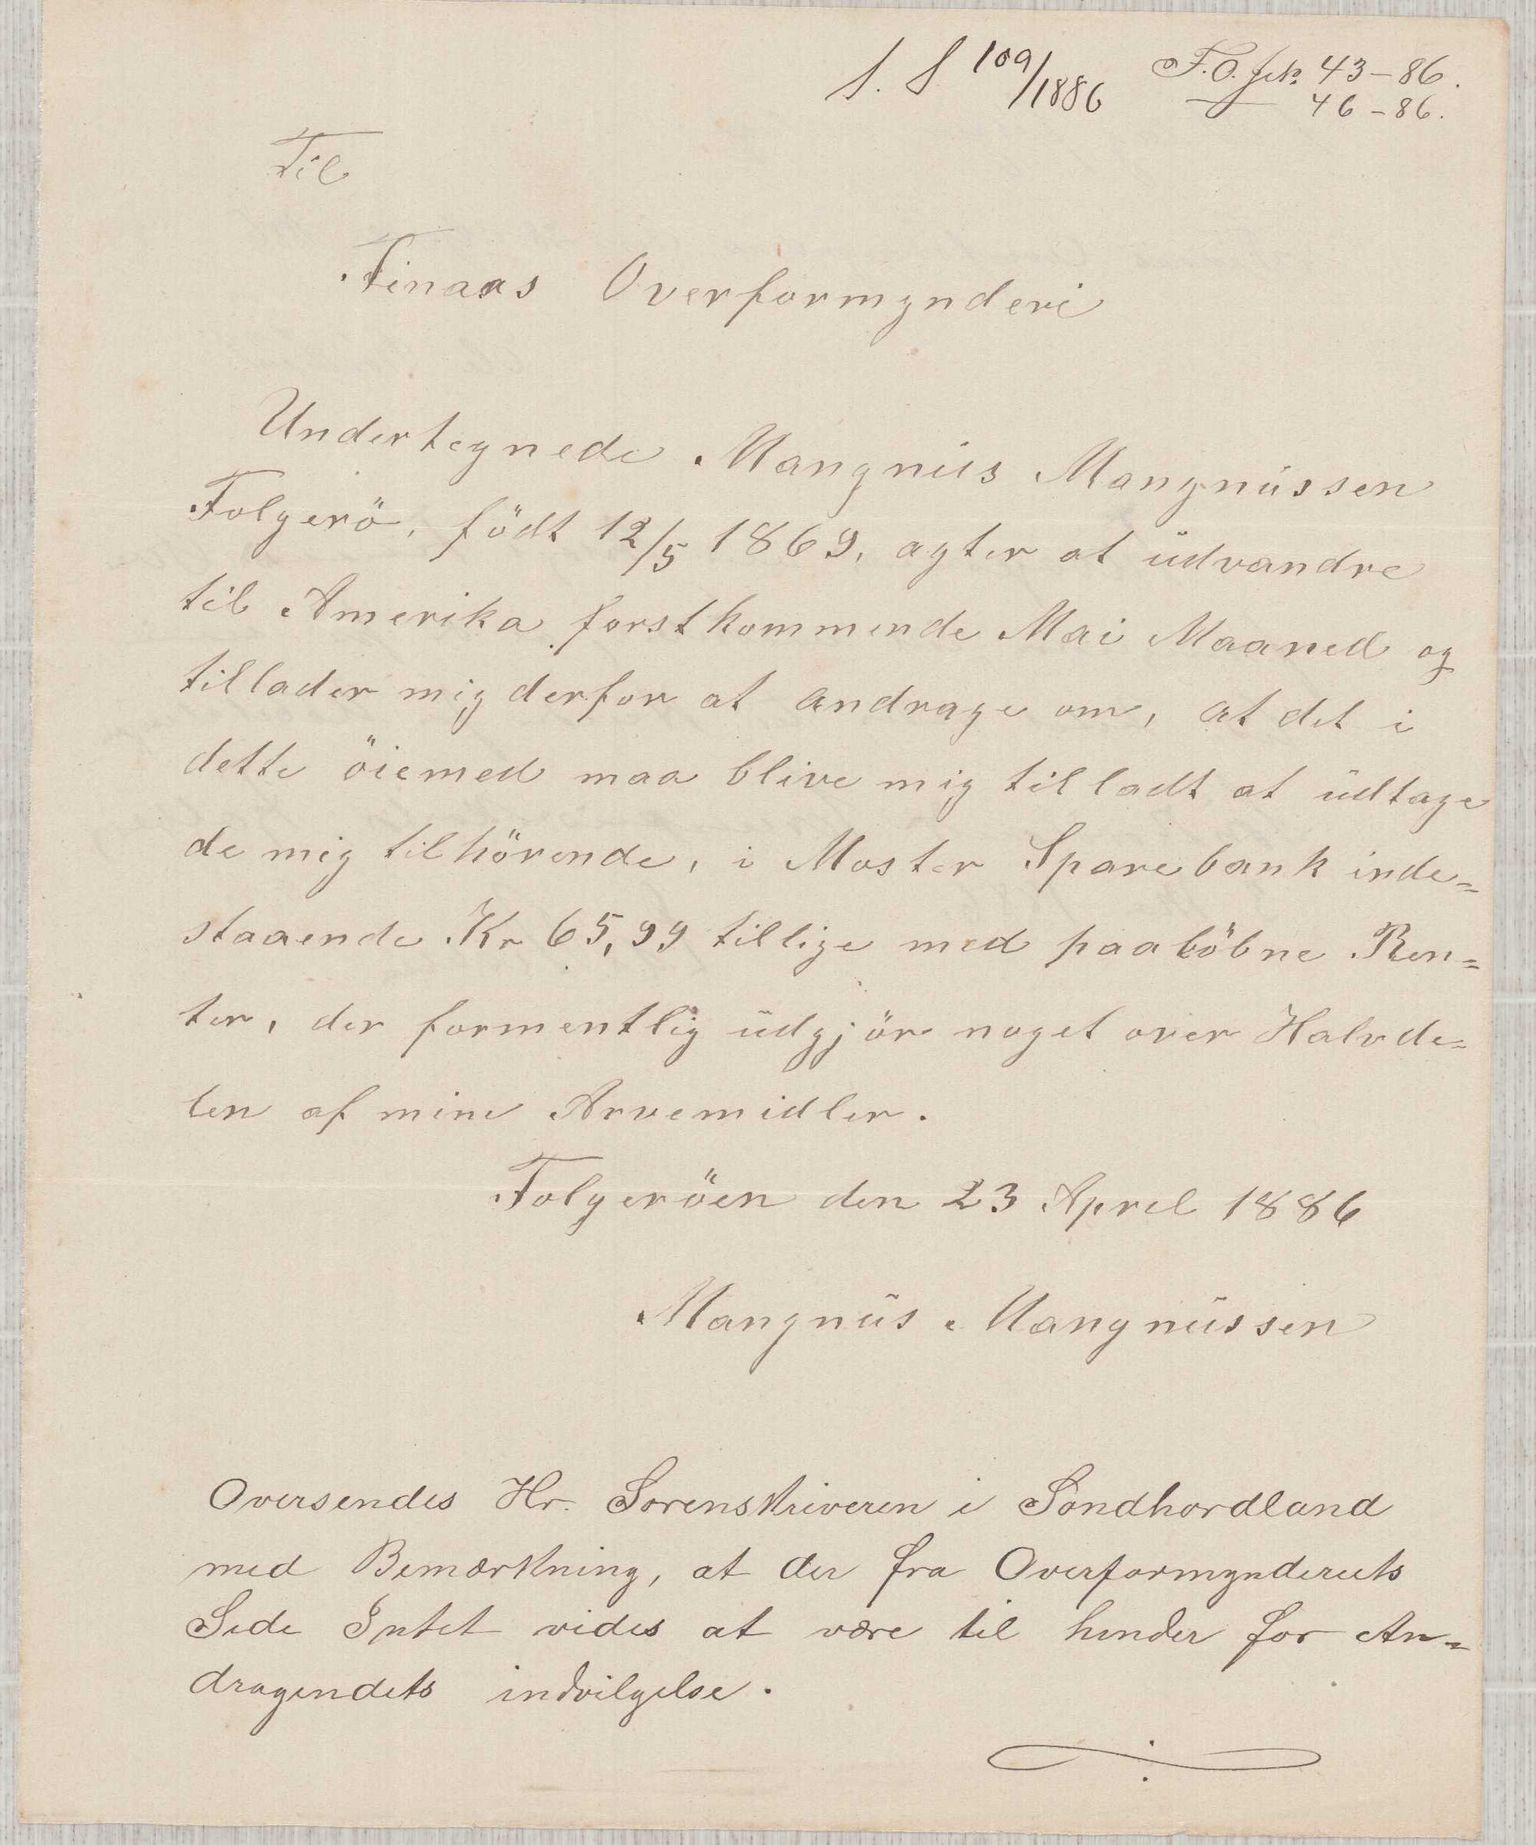 S. S. 109/1886 F.O. jk. 43-86.
46-86.
Til
Finaas Overformynderi
Undertegnede Mangnus Mangnussen
Folgerö, födt 12/5 1869, agter at udvandre
til Amerika forstkommende Mai Maaned og
tillader mig derfor at andrage om, at det i
dette öiemed maa blive mig tilladt at udtage
de mig tilhörende, i Moster Sparebank inde=
staaende Kr 65,99 tillige med paalöbne Ren=
ter, der formentlig udgjör noget over Halvde=
len af mine Arvemidler.
Folgeröen den 23 April 1886
Mangnus Mangnussen
Oversendes Hr. Sorenskriveren i Söndhordland
med Bemærkning, at der fra Overformynderiets
Side Intet vides at være til hinder for An=
dragendets indvilgelse.